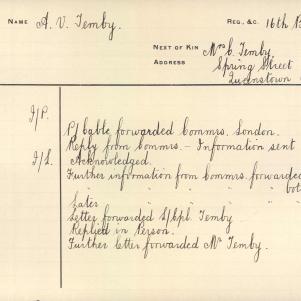 NAME A. V. Temby. REG., &C. 16th B
NEXT OF KIN Mrs C. Temby.
ADDRESS Spring Street
Queenstown
I/P. P/ cable forwarded Commrs. London.
Reply from Commrs. - Information sent
I/L. Acknowledged.
Further information from Commrs. forwarded
" " " " bot
Later " " "
Letter forwarded S/Cpl. Temby
Replied in Person.
Further letter forwarded Mr Temby.